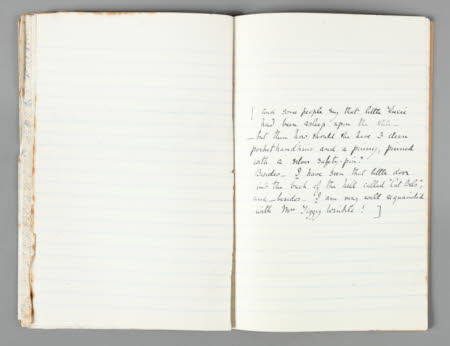 [ and some people say that little Lucie
had been asleep upon the stile –
– but then how should she have 3 clean
pockethandkins and a pinny, pinned
with a silver safety-pin?
Besides – I have seen that little door
into the back of the hill called "Cat Bells",
and – besides – I am very well acquainted
with Mrs Tiggy Winkle! ]